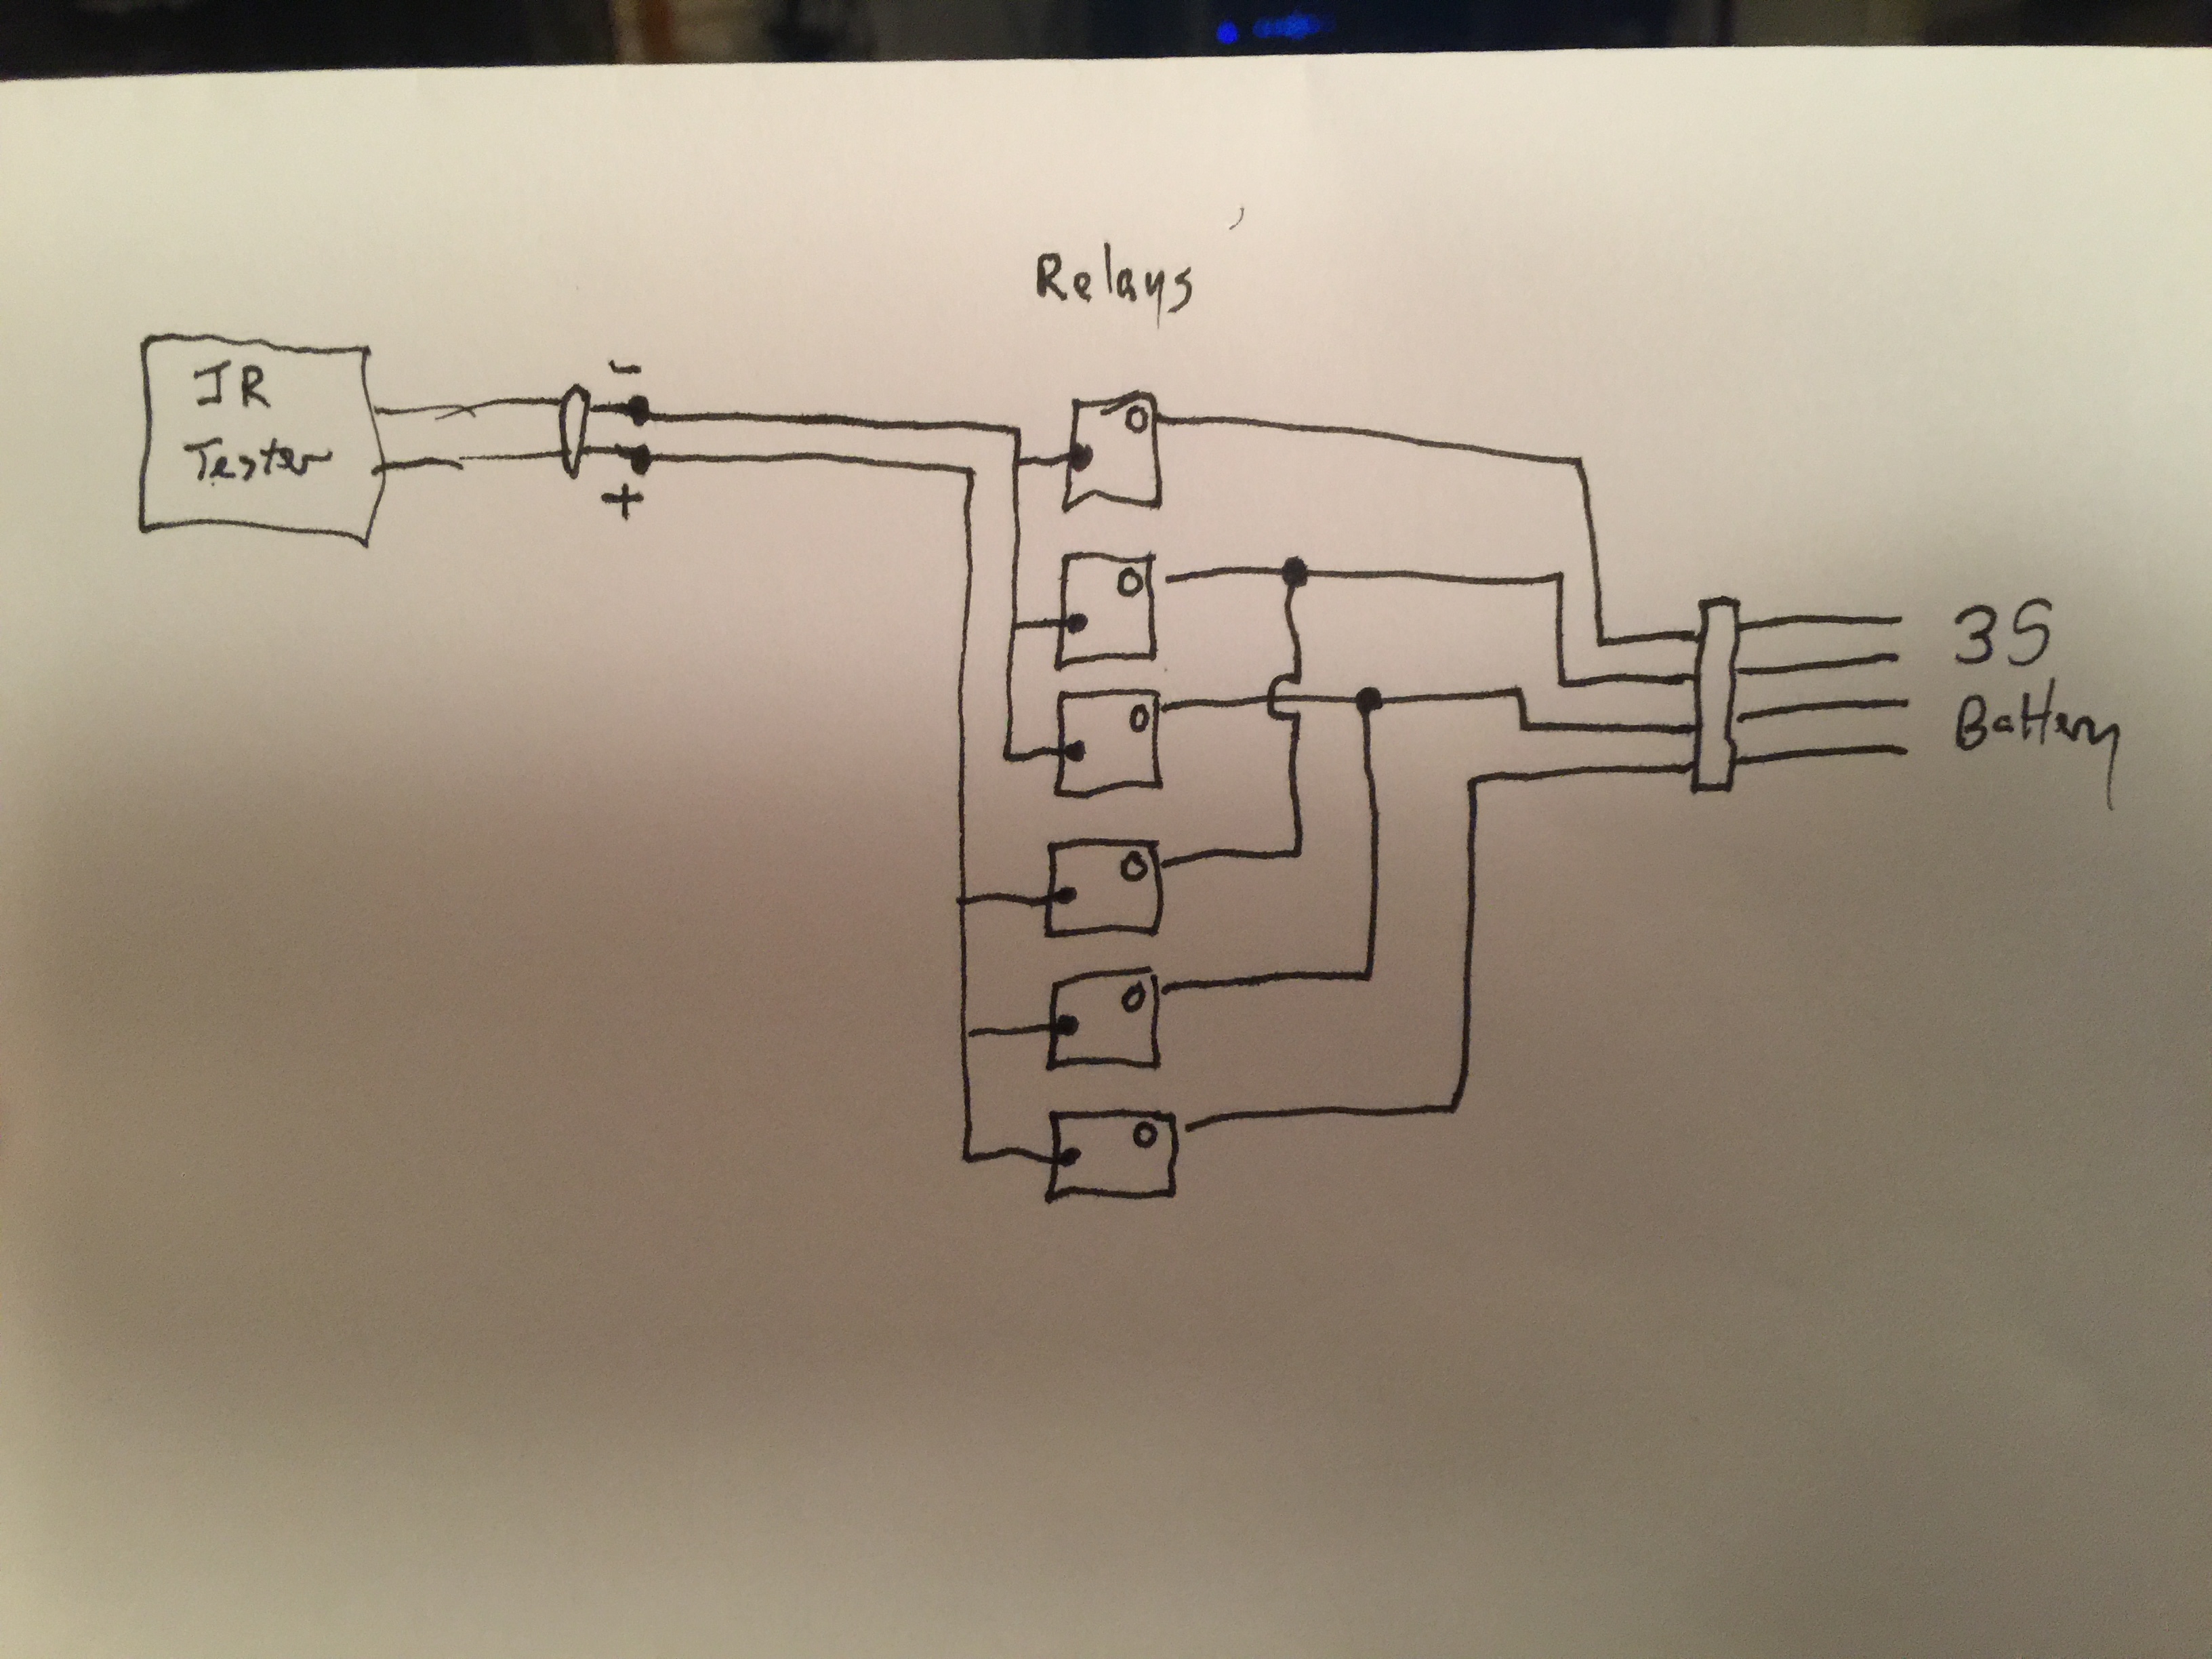 Relays
-
IR
Tester
+
3S
Battery